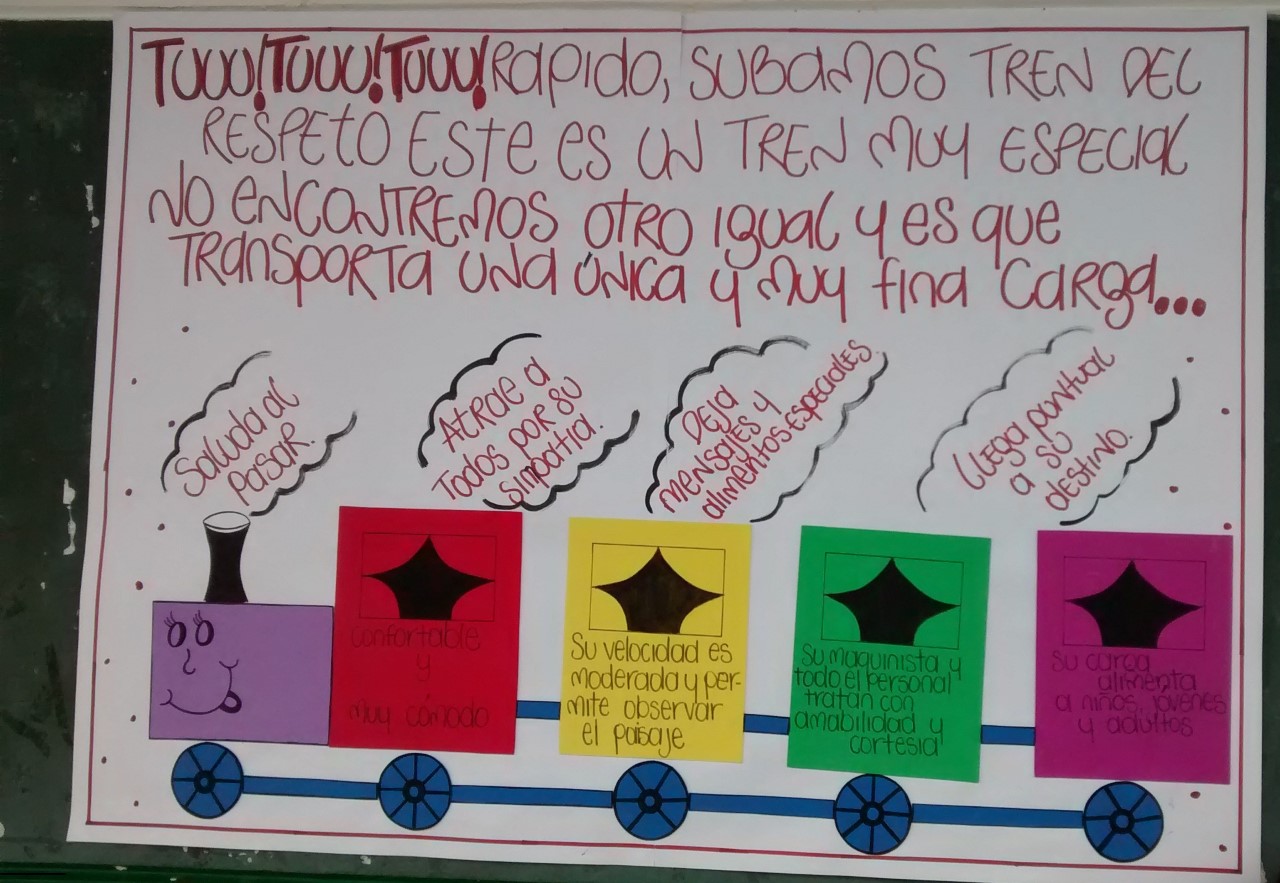 TUUU!TUUU!TUUU! RAPIDO, SUBAMOS TREN DEL
RESPETO ESTE ES UN TREN MUY ESPECIAL
NO ENCONTREMOS OTRO IGUAL Y ES QUE
TRANSPORTA UNA ÚNICA Y MUY FINA CARGA...
Saluda al
pasar.
Atrae a
todos por su
simpatia.
Deja
mensajes y
alimentos especiales.
Llega puntual
a su
destino.
confortable
y
muy cómodo
Su velocidad es
moderada y per-
mite observar
el paisaje
Su maquinista y
todo el personal
tratan con
amabilidad y
cortesia
su carga
alimenta
a niños, jóvenes
y adultos